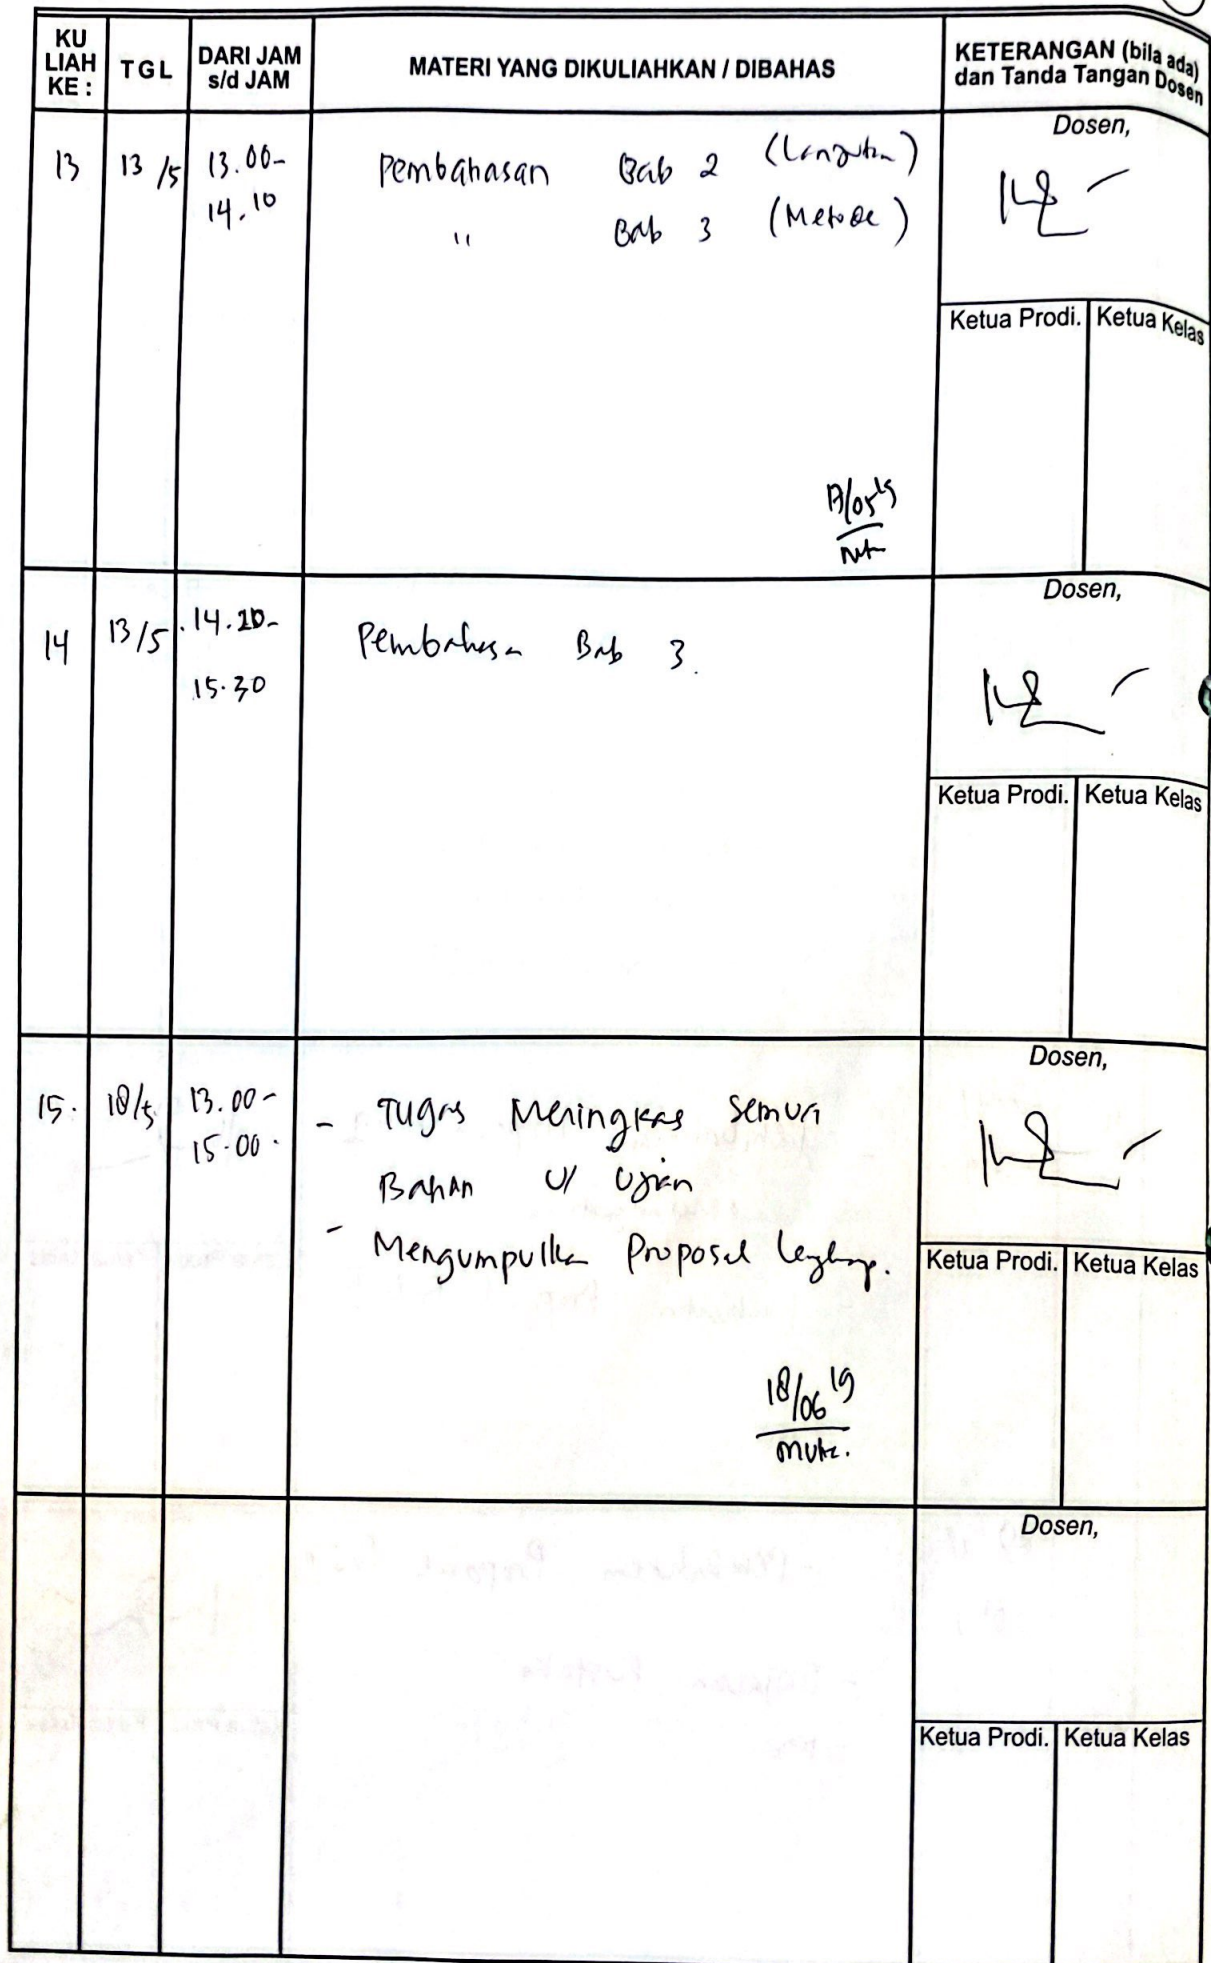 KU LIAH KE :
TGL
DARI JAM s/d JAM
MATERI YANG DIKULIAHKAN / DIBAHAS
KETERANGAN (bila ada) dan Tanda Tangan Dosen
13
13/5
13.00-
14.10
Pembahasan Bab 2
" Bab 3 (Metode)
Dosen,
Ketua Prodi. Ketua Kelas
14
13/5
14.20-
15.30
Pembahasan Bab 3.
Dosen,
Ketua Prodi. Ketua Kelas
15.
18/5
13.00-
15.00.
- Tugas Meringkas semua
Bahan U/ Ujian
- Mengumpulkan Proposal lengkap.
18/06 19
Dosen,
Ketua Prodi. Ketua Kelas
Dosen,
Ketua Prodi. Ketua Kelas